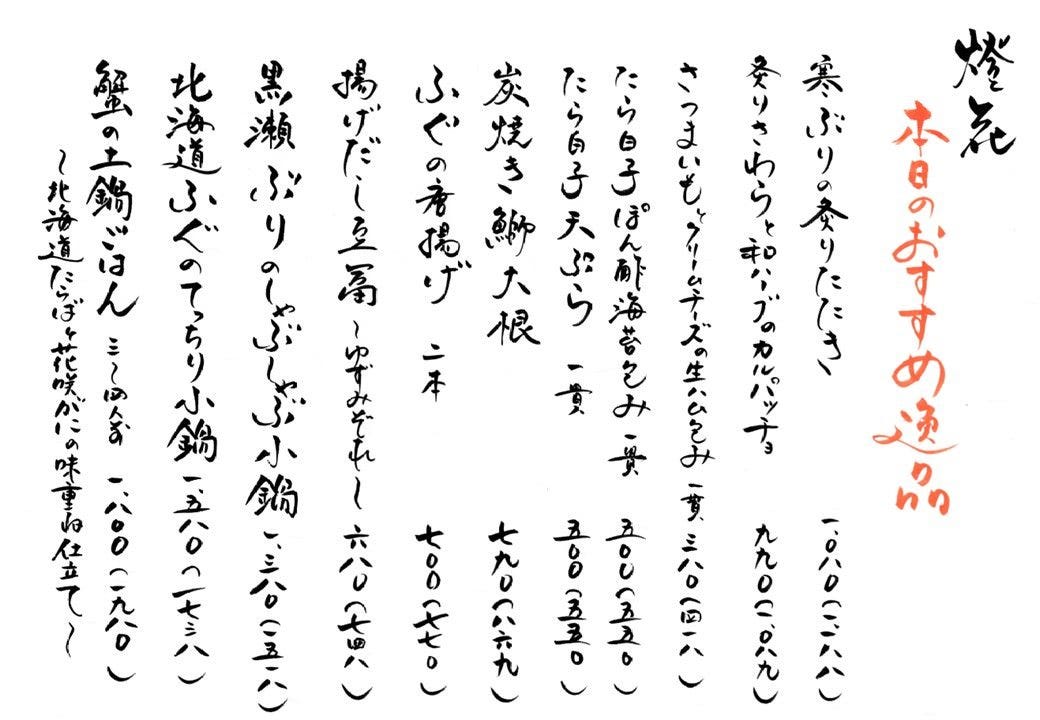 燈花
本日のおすすめ逸品
寒ぶりの炙りたたき 一、〇八〇(一、一八八)
炙りさわらと和ハーブのカルパッチョ 九九〇(一、〇八九)
さつまいもとクリームチーズの生ハム包み 一貫 三八〇(四一八)
たら白子ぽん酢海苔包み 一貫 五〇〇(五五〇)
たら白子天ぷら 一貫 五〇〇(五五〇)
炭焼き鰤大根 七九〇(八六九)
ふぐの唐揚げ 二本 七〇〇(七七〇)
揚げだし豆冨 〜ゆずみぞれ〜 六八〇(七四八)
黒瀬ぶりのしゃぶしゃぶ小鍋 一、三八〇(一五一八)
北海道ふぐのてっちり小鍋 一、五八〇(一七三八)
蟹の土鍋ごはん 三〜四人前 一、八〇〇(一九八〇)
〜北海道たらばと花咲がにの味重ね仕立て〜